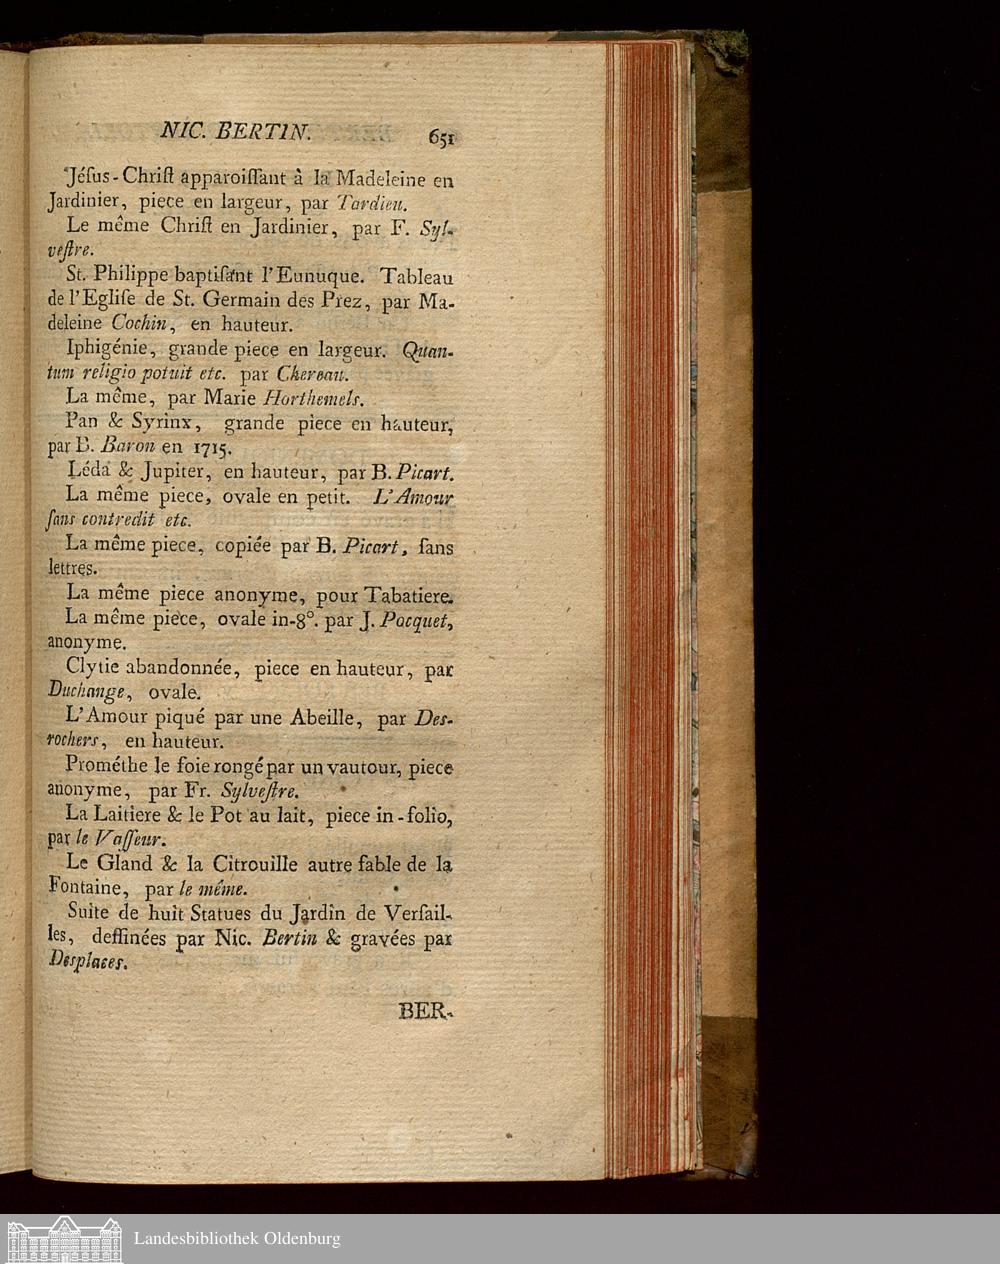 NIC. BERTIN. 651
Jéſus-Chriſt apparoiſſant à la Madeleine en
Jardinier, piece en largeur, par Tardieu.
Le même Chriſt en Jardinier, par F. Syl-
veſtre.
St. Philippe baptiſant l'Eunuque. Tableau
de l'Egliſe de St. Germain des Prez, par Ma-
deleine Cochin, en hauteur.
Iphigénie, grande piece en largeur. Quan-
tum religio potuit etc. par Chereau.
La même, par Marie Horthemels.
Pan & Syrinx, grande piece en hauteur,
par B. Baron en 1715.
Léda & Jupiter, en hauteur, par B. Picart.
La même piece, ovale en petit. L'Amour
ſans contredit etc.
La même piece, copiée par B. Picart, ſans
lettres.
La même piece anonyme, pour Tabatiere.
La même piece, ovale in-8°. par J. Pacquet,
anonyme.
Clytie abandonnée, piece en hauteur, par
Duchange, ovale.
L'Amour piqué par une Abeille, par Des-
rochers, en hauteur.
Prométhe le foie rongé par un vautour, piece
anonyme, par Fr. Sylveſtre.
La Laitiere & le Pot au lait, piece in-folio,
par le Vaſſeur.
Le Gland & la Citrouille autre fable de la
Fontaine, par le même.
Suite de huit Statues du Jardin de Verſail-
les, deſſinées par Nic. Bertin & gravées par
Desplaces.
BER-
Landesbibliothek Oldenburg